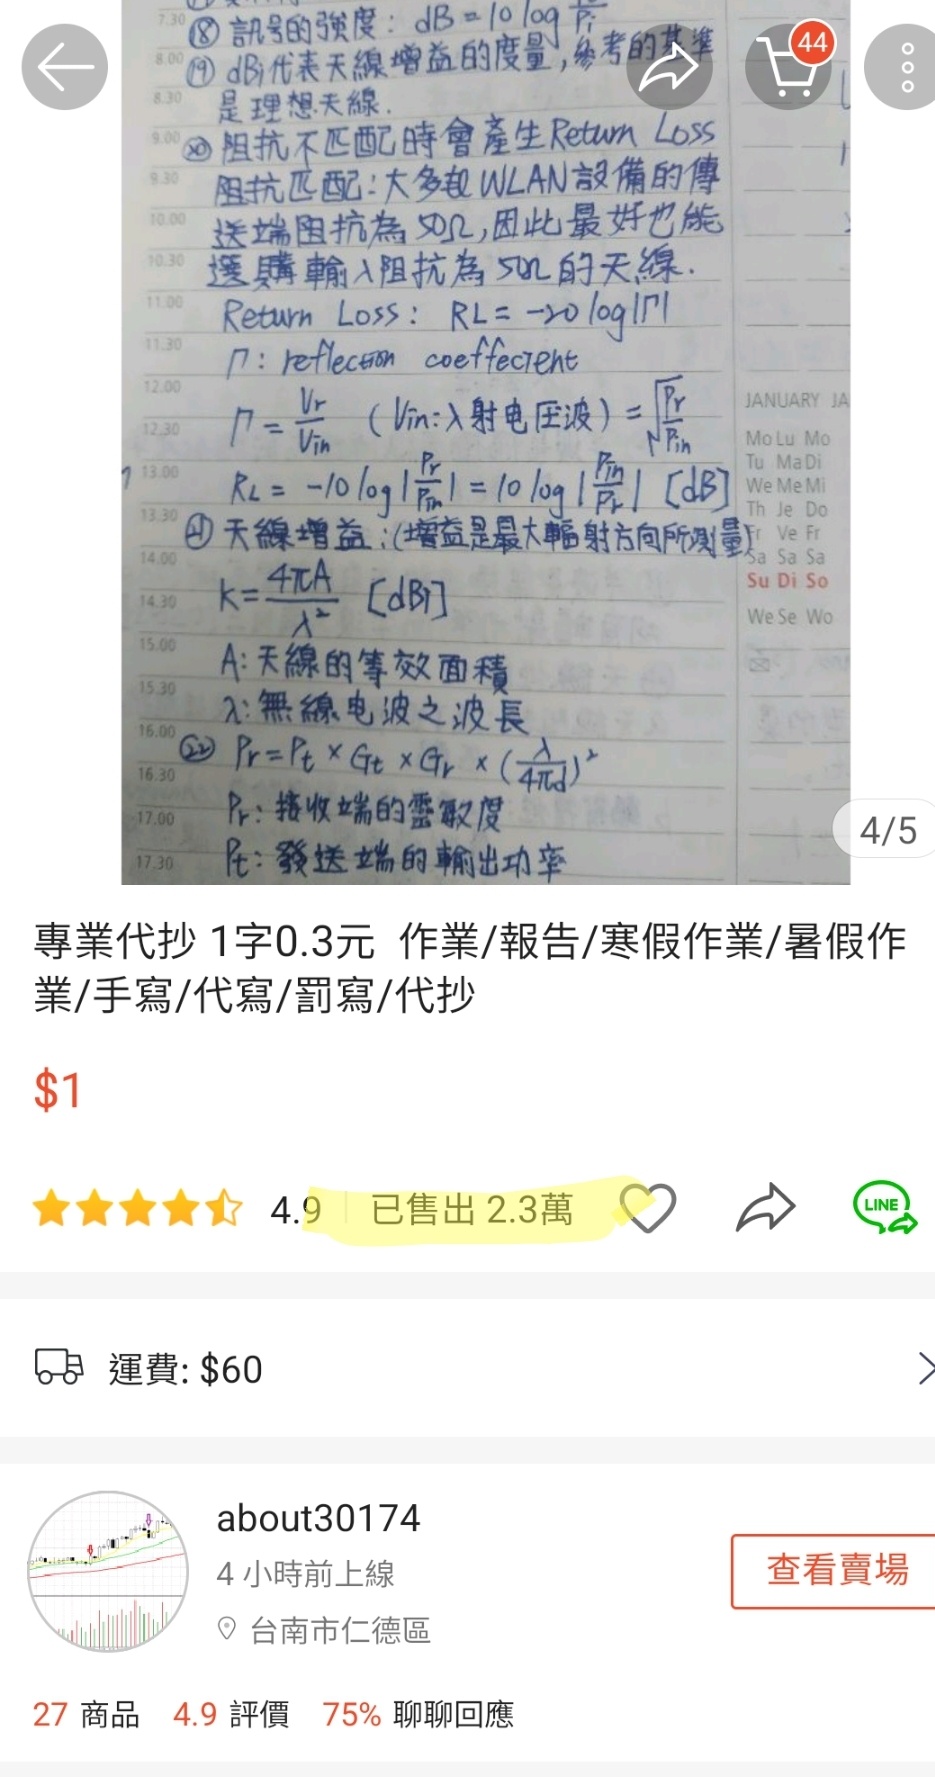 7.30
⑱ 訊号的強度: dB = 10 log
8.00
⑲ dBi代表天線增益的度量,參考的基準
44
8.30
是理想天線.
9.00
⑳ 阻抗不匹配時會產生Return Loss
9.30
阻抗匹配:大多起WLAN設備的傳
10.00
送端阻抗為50Ω,因此最好也能
10.30
選購輸入阻抗為50Ω的天線.
11.00
Return Loss: RL = -20 log|Γ|
11.30
Γ: reflection coeffecient
12.00
JANUARY JA
12.30
Γ = Vr/Vin (Vin:入射电压波) = √Pr/Pin
Mo Lu Mo
Tu Ma Di
13.00
RL = -10 log|Pr/Pin| = 10 log|Pin/Pr| [dB]
We Me Mi
Th Je Do
13.30
㉑ 天線增益:(增益是最大輻射方向所測量)
Fr Ve Fr
14.00
Sa Sa Sa
k = 4πA/λ² [dBi]
Su Di So
14.30
We Se Wo
15.00
A:天線的等效面積
15.30
λ:無線电波之波長
16.00
㉒ Pr = Pt × Gt × Gr × (λ/4πd)²
16.30
17.00
Pr:接收端的靈敏度
4/5
17.30
Pt:發送端的輸出功率
專業代抄 1字0.3元 作業/報告/寒假作業/暑假作
業/手寫/代寫/罰寫/代抄
$1
4.9 已售出 2.3萬
LINE
運費: $60
about30174
4 小時前上線
查看賣場
台南市仁德區
27 商品 4.9 評價 75% 聊聊回應